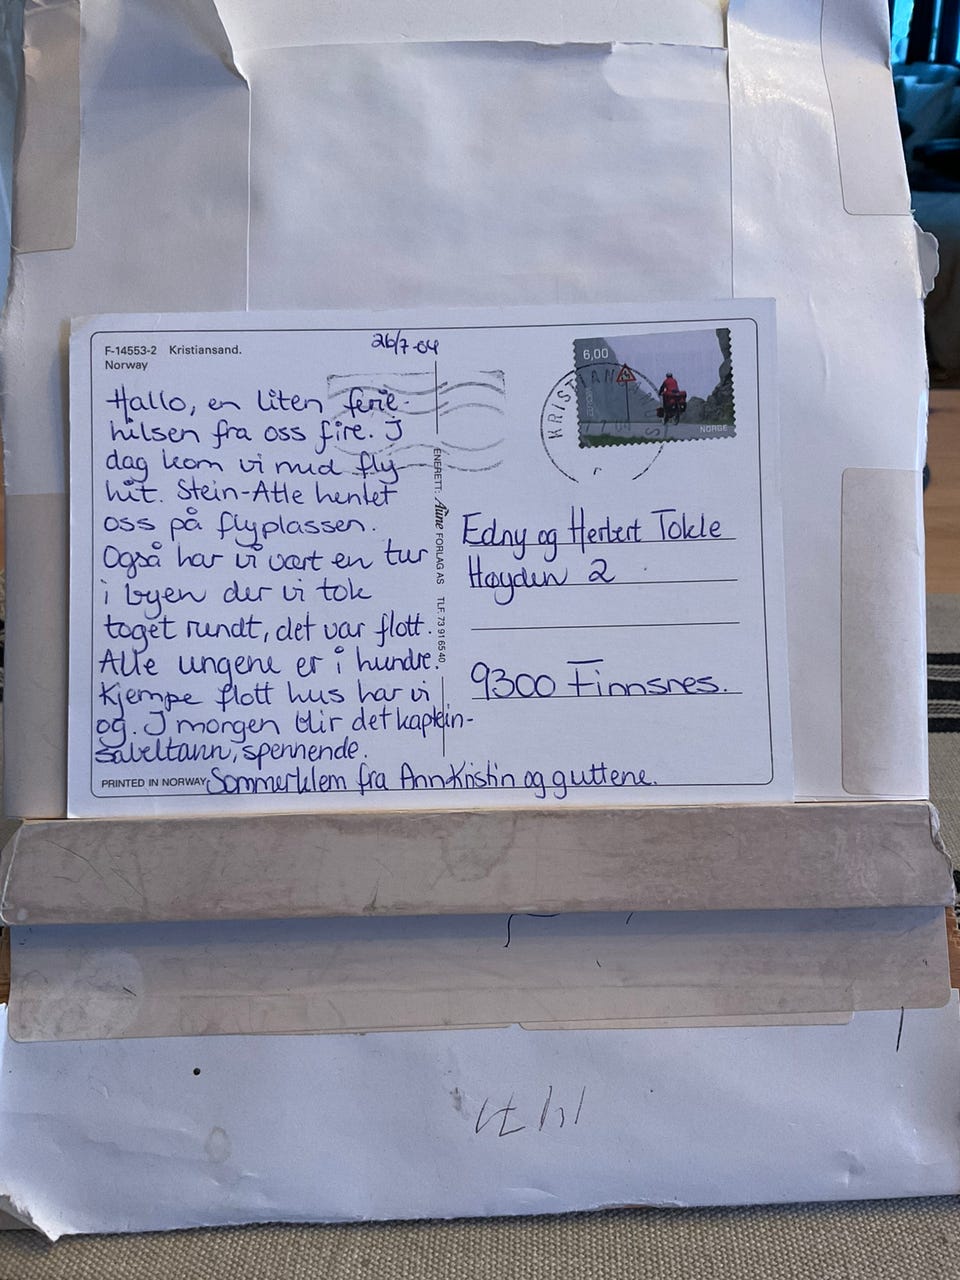 F-14553-2 Kristiansand.
Norway
26/7-04
Hallo, en liten ferie-
hilsen fra oss fire. I
dag kom vi med fly
hit. Stein-Atle hentet
oss på flyplassen.
Også har vi vært en tur
i byen der vi tok
toget rundt, det var flott.
Alle ungene er i hundre.
Kjempe flott hus har vi
og. I morgen blir det kaptein-
sabeltann, spennende.
Sommerklem fra Ann-Kristin og guttene.
PRINTED IN NORWAY
ENERETT: Aune FORLAG AS TLF. 73 91 65 40
6,00
NORGE
Edny og Herbert Tokle
Høyden 2
9300 Finnsnes.